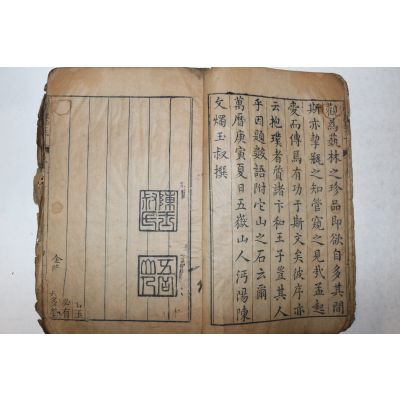 觀爲蓺林之珍品即欲自多其聞
斯亦挈瓶之知管窺之見我孟起
愛而傳焉有功于斯文矣彼序亦
云抱璞者質諸卞和王子豈其人
乎因題數語附它山之石云爾
萬曆庚寅夏日五嶽山人沔陽陳
文燭玉叔撰
陳玉
叔氏
五岳
山人
玉
必有